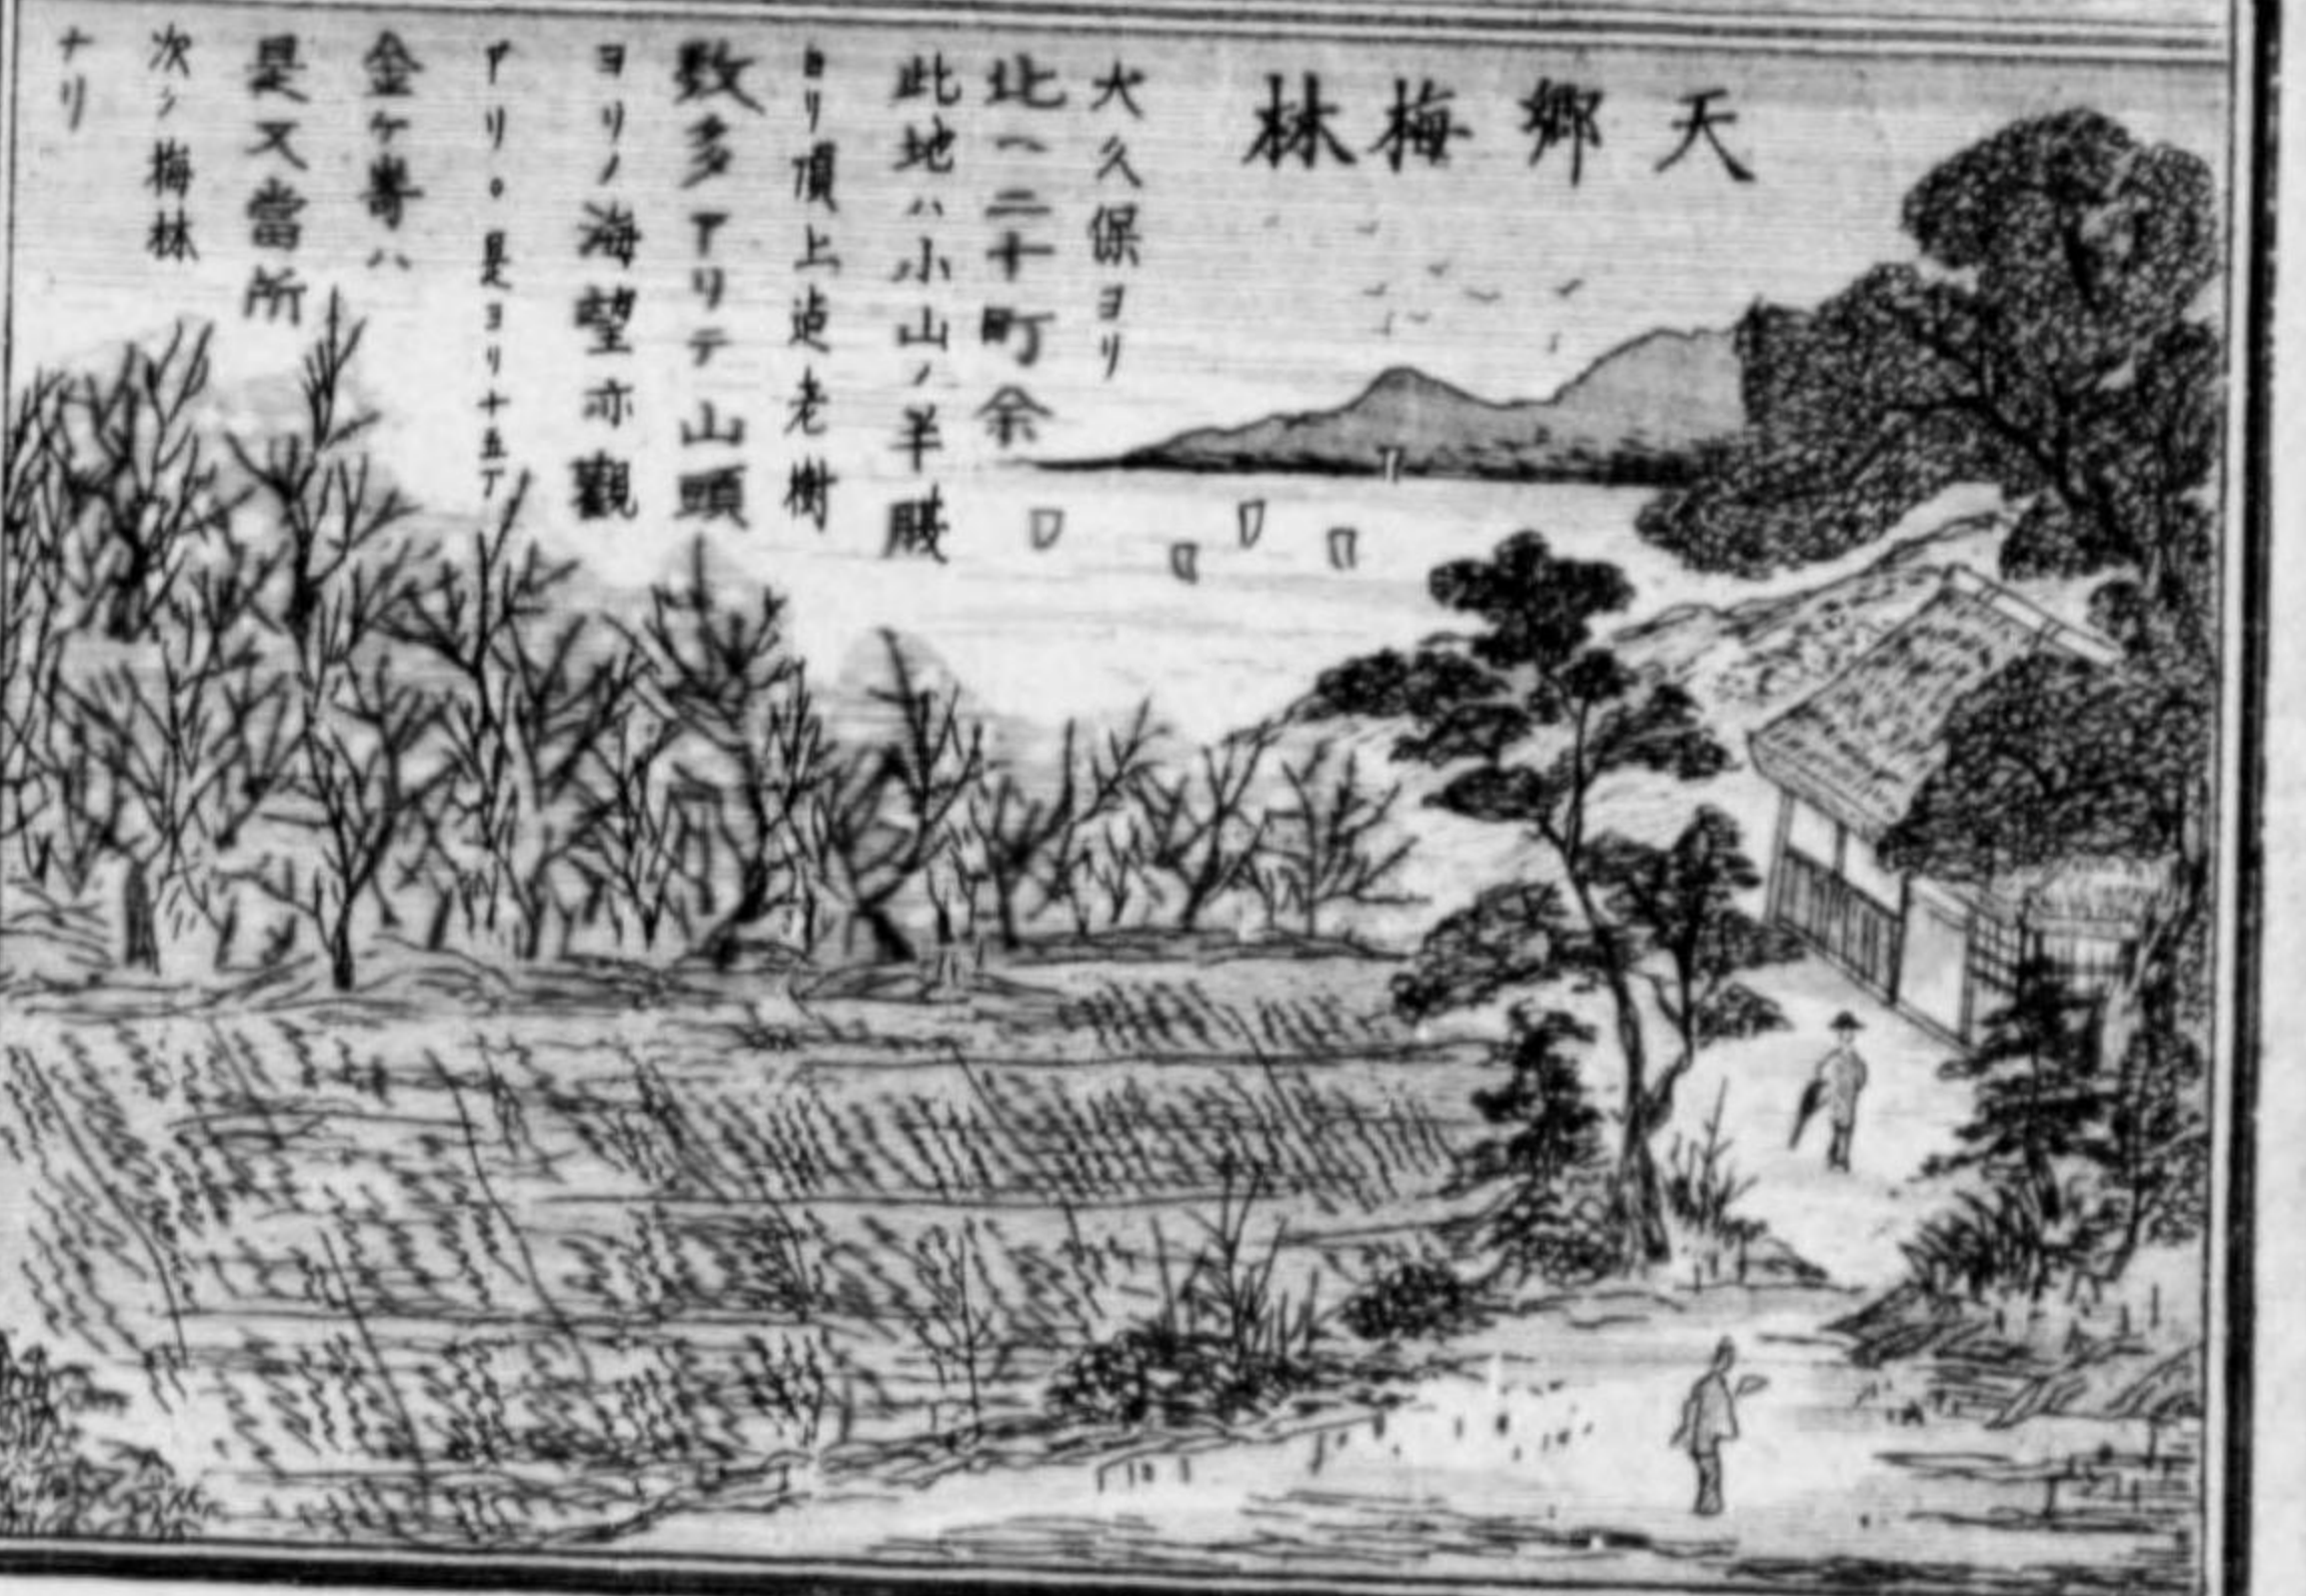 天郷梅林
大久保ヨリ
北ヘ二十町余
此地ハ小山ノ半腹
ヨリ頂上迠老樹
数多アリテ山頭
ヨリノ海望亦觀
アリ。是ヨリ十五丁
金ケ﨑ハ
是又當所
次ノ梅林
ナリ